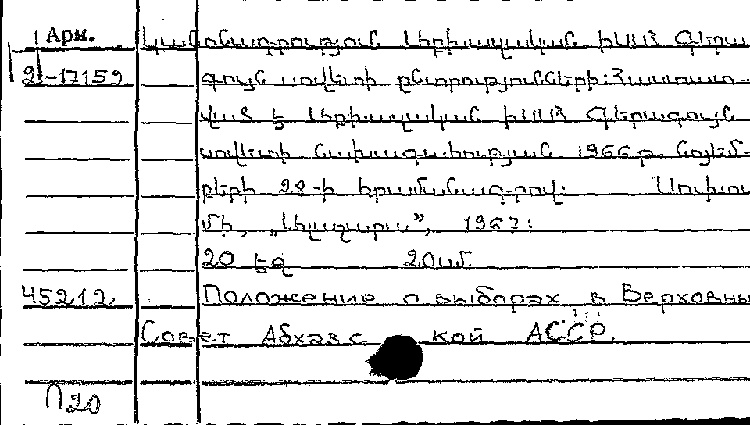 Арм. Կանոնադրություն Աբխազական ԻՍՍՀ Գերա
2-17159 գույն սովետի ընտրությունների: Հաստատ-
ված է Աբխազական ԻՍՍՀ Գերագույն
սովետի նախագահության 1966թ. նոյեմ-
բերի 22-ի հրամանագրով: Սուխու
մի, „Ալաշարա”, 1967:
20 էջ 20սմ.
45212. Положение о выборах в Верховны
Совет Абхазс кой АССР.
П20